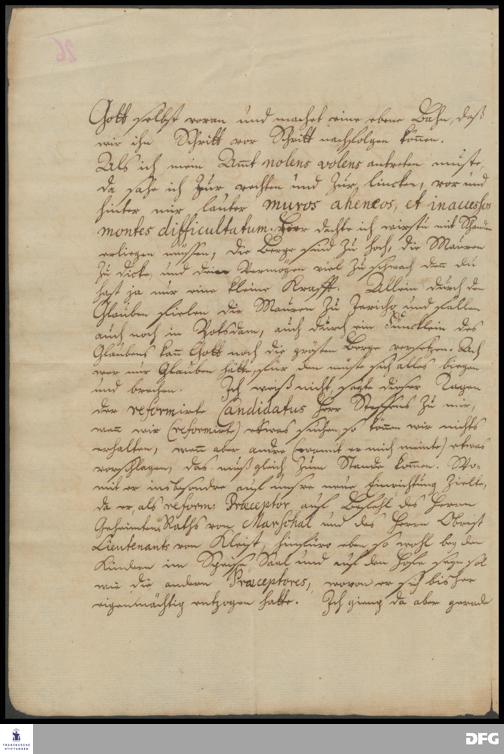 Gott selbst voran und machet eine ebene Bahn, daß
wir ihm Schritt vor Schritt nachfolgen können.
Als ich mein Amt nolens volens antreten muste,
da sahe ich zur rechten und zur lincken, vor und
hinter mir lauter muros aheneos, et inaccessos
montes difficultatum. Hier dachte ich wirstu mit Schanden
erliegen müssen, die Berge sind zu hoch, die Mauren
zu dicke, und dein Vermögen viel zu schwach denn du
hast ja nur eine kleine Krafft. Allein durch den
Glauben fielen die Mauren zu Jericho und fallen
auch noch in Potsdam, auch durch ein Füncklein des
Glaubens kan Gott noch die grösten Berge versetzen. Ach
wer nur Glauben hätte, für dem müste sich alles biegen
und brechen. Ich weiß nicht, sagte dieser Tagen
der reformirte Candidatus Herr Steffens zu mir,
wann wir (reformirte) etwas suchen so können wir nichts
erhalten, wenn aber andre (womit er mich meinte) etwas
vorschlagen, das muß gleich zum Stande kommen. Wo-
mit er insbesondre auf unsre neue Einrichtung zielte,
da er als reform: Praeceptor auf Befehl des Herrn
Geheimten Raths von Marschal und des Herrn Obrist
Lieutenants von Kleist, hinführo eben so wohl bey den
Kindern im Speise-Saal und auf dem Hofe seyn sol
wie die andern Praeceptores, wovon er sich bisher
eigenmächtig entzogen hatte. Ich gieng da aber gerade
FRANCKESCHE
STIFTUNGEN
DFG